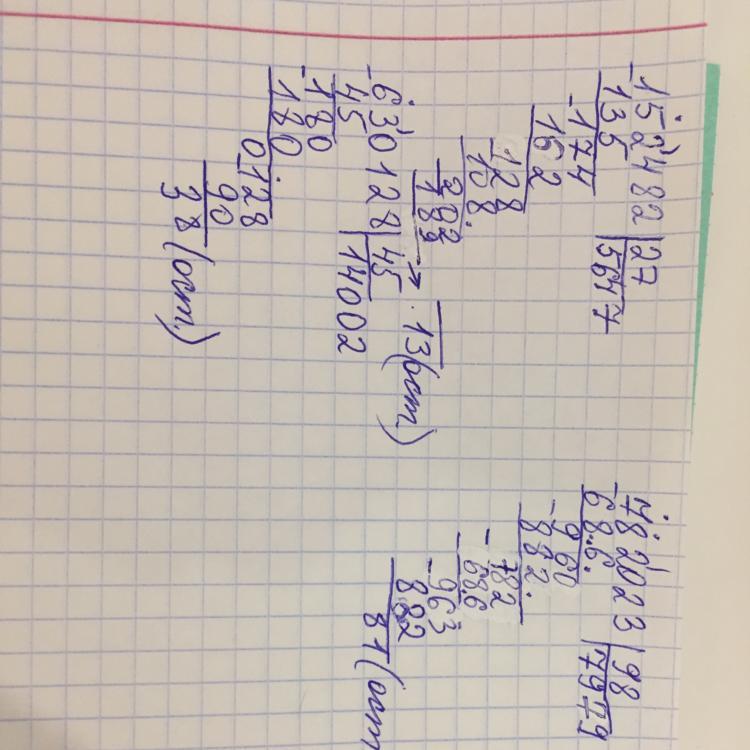 -152482 |27
135 5647
-174
162
-128
108
202
189 → 13(ост.)
-630128 |45
45 14002
-180
180
0128
90
38(ост.)
-782023 |98
686 7979
-960
882
-782
686
-963
882
81(ост